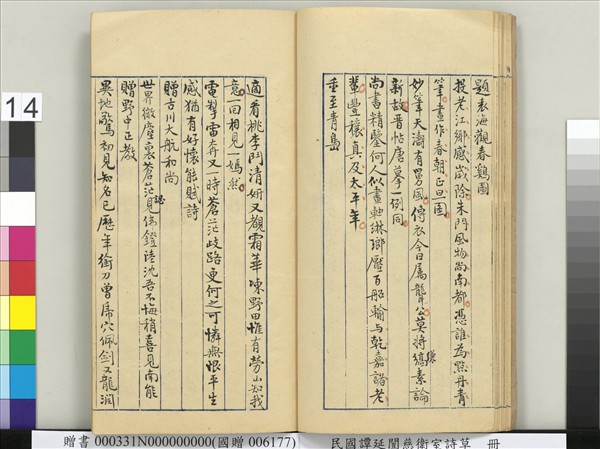 題袁海觀春鷄圖
投老江鄉感歲除朱門風物尚南都憑誰為點丹青
筆畫作春朝正旦圖
妙筆天濤有男國傳衣今日屬龔公莫將縑素論
新故晋帖唐摹一例同
尚書精鑒何人似畫軸琳瑯壓百船輸與乾嘉諸老
輩豐穰真及太平年
重至青島
適看桃李鬥清妍又覩霜華凍野田惟有勞山知我
意一回相見一嫣然
電掣雷奔又一時蒼茫歧路更何之可憐無恨平生
感猶有好懷能賦詩
贈古川大航和尚
世界微塵裏蒼茫見佛鐙陸沈吾不悔稍喜見南能
贈野中正教
異地驚初見知名已歷年銜刀曾虎穴佩劍又龍淵
14
贈書 000331N000000000(國贈 006177)
民國譚延闓慈衛室詩草 冊